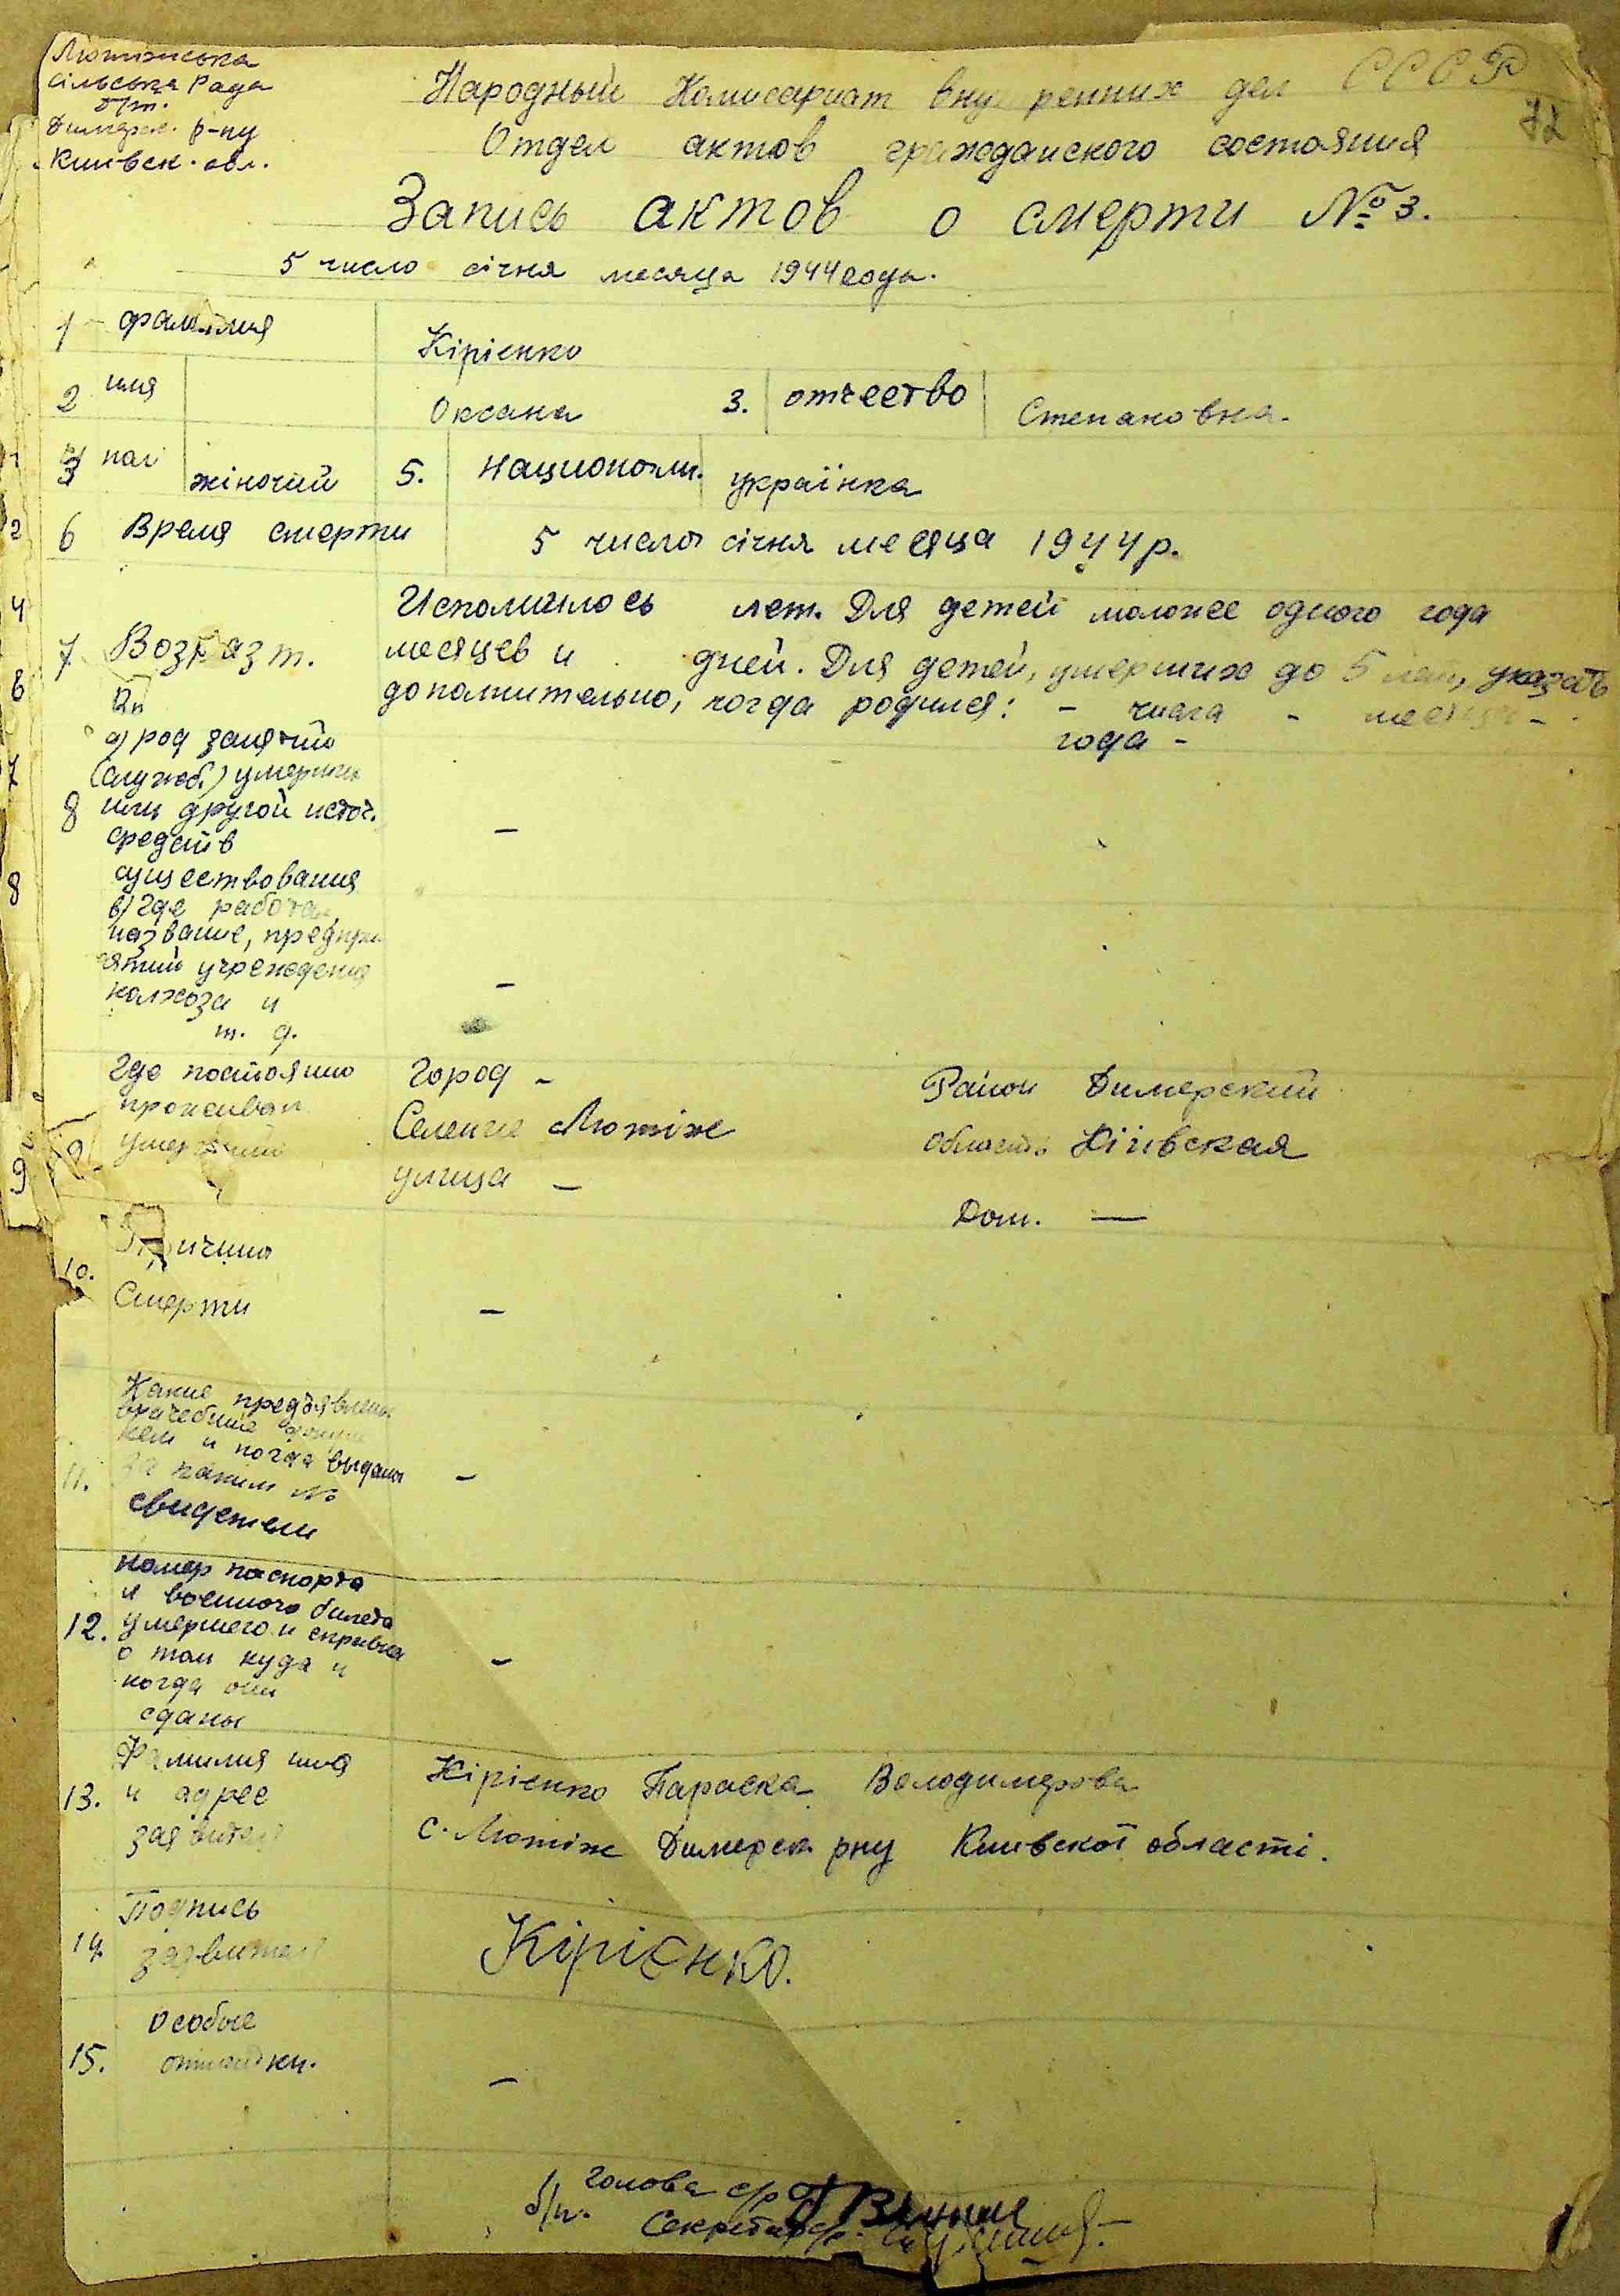 Лютіжська
сільська Рада
Димерс. р-ну
Київськ. обл.
72
Народный Комисариат внутренних дел СССР
Отдел актов гражданского состояния
Запись актов о смерти № 3.
5 число січня месяца 1944 года.
1 фамилия Кірієнко
2 имя Оксана 3. отчество Степановна.
пол жіночий 5. Национальн. українка
6 Время смерти 5 числа січня месяца 1944 р.
Исполнилось лет. Для детей моложее одного года
7 Возразт. месяцев и дней. Для детей, умерших до 5 лет, указать
дополнительно, когда родился: - числа - месяца -
года -
а) род занятий
(служб.) умерших
8 или другой источ. -
средств
существования
в) где работал,
название, предпри
ятий учреждения
колхоза и -
т. д.
Где постояно Город - Район Димерский
проживал Селение Лютіж область Київская
9 умерший улица - Дом. —
Причина
10.
Смерти -
Какие предъявлены
врачебные
кем и когда выданы -
11. за каким №
свидетели
Номер паспорта
и военного билета
12. умершего и справка
о том куда и -
когда они
сданы
Фамилия имя Кірієнко Параска Володимеровна
13. и адрес
заявителя с. Лютіж Димерск рну Киевскої області.
Подпись
14 заявителя Кірієнко.
Особые
15. отметки. -
Голова с/р
б/п. Секретар с/р.